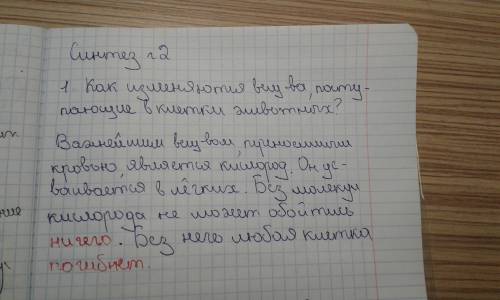 Синтез г2
1. Как изменяются вещ-ва, посту-
пающие в клетки животных?
Важнейшим вещ-вом, переносимым
кровью, является кислород. Он ус-
ваивается в лёгких. Без молекул
кислорода не может обойтись
ничего. Без него любая клетка
погибнет.
ние